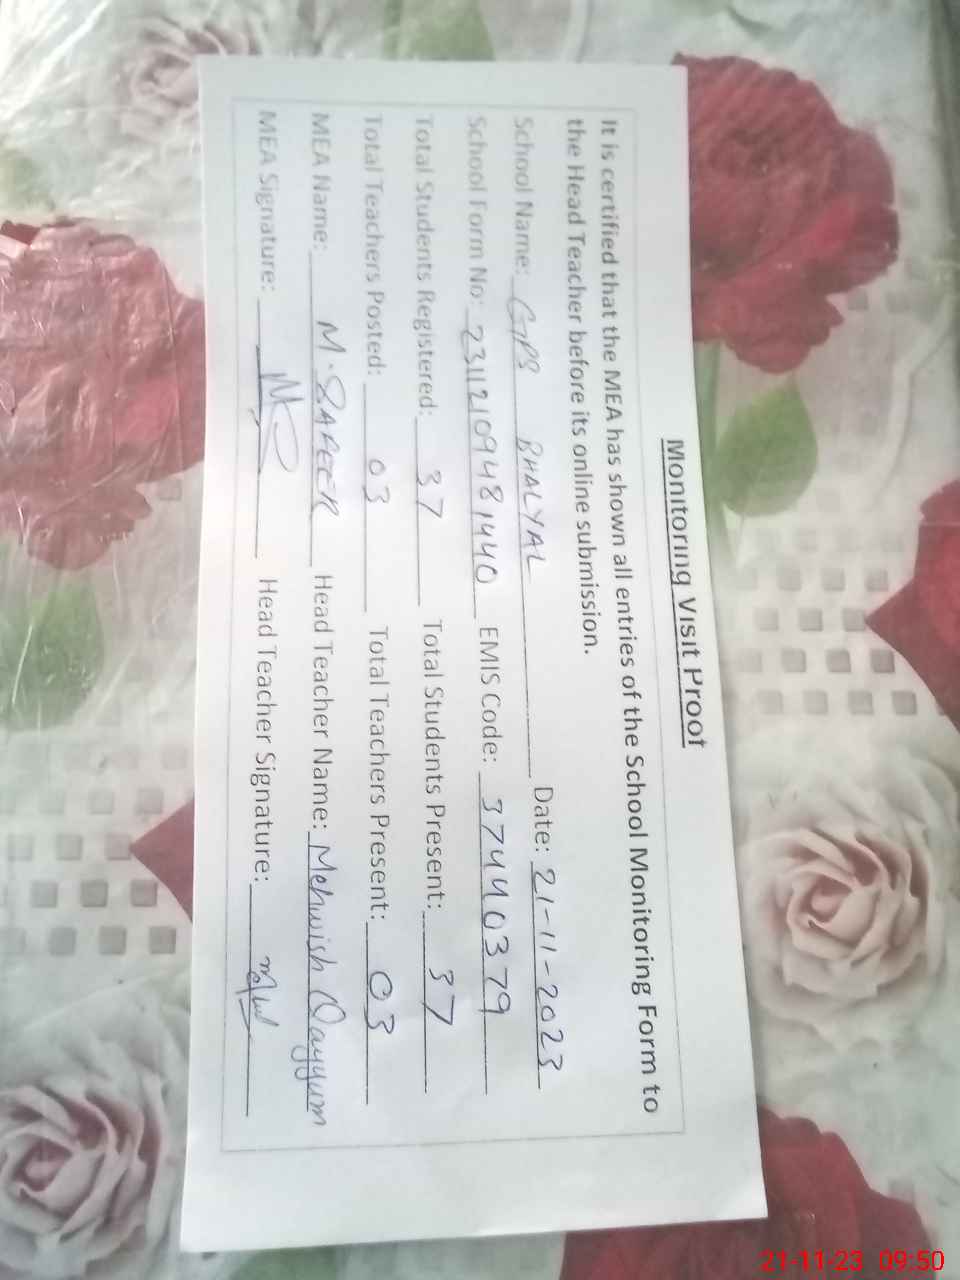 Monitoring Visit Proof
It is certified that the MEA has shown all entries of the School Monitoring Form to
the Head Teacher before its online submission.
School Name: GPS BHALYAL Date: 21-11-2023
School Form No: 23112109481440 EMIS Code: 37440379
Total Students Registered: 37 Total Students Present: 37
Total Teachers Posted: 03 Total Teachers Present: 03
MEA Name: M. SAFEER Head Teacher Name: Mehwish Qayyum
MEA Signature: Head Teacher Signature:
21-11-23 09:50